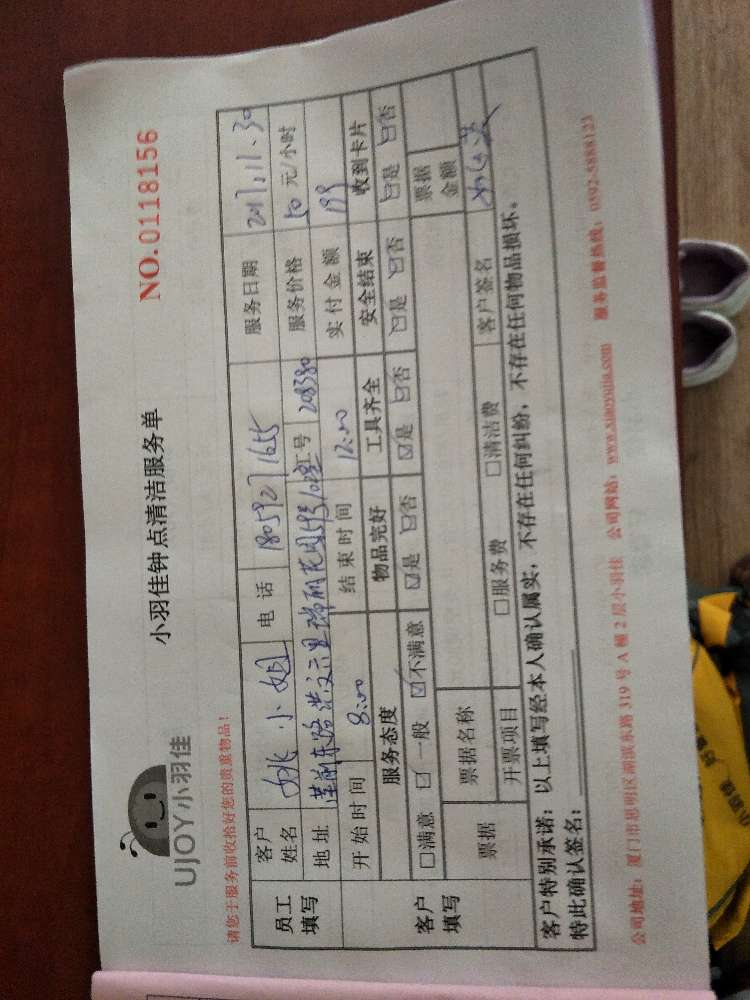 UJOY小羽佳
小羽佳钟点清洁服务单
NO.0118156
请您于服务前收拾好您的贵重物品！
员工填写 客户姓名 姚小姐 电话 18059271655 服务日期 2017.11.30
地址 莲前东路洪文六里瑞丽花园 工号 208380 服务价格 50元/小时
开始时间 8:00 结束时间 12:00 实付金额 199
客户填写 服务态度 物品完好 工具齐全 安全结束 收到卡片
□满意 □一般 ☑不满意 ☑是 □否 ☑是 □否 ☑是 □否 ☑是 □否
票据 票据名称 票据金额
开票项目 □服务费 □清洁费 客户签名
客户特别承诺：以上填写经本人确认属实，不存在任何纠纷，不存在任何物品损坏。
特此确认签名：
公司地址：厦门市思明区湖滨东路319号A幢2层小羽佳 公司网站：www.xiaoyujia.com 服务监督热线：0592-5888123